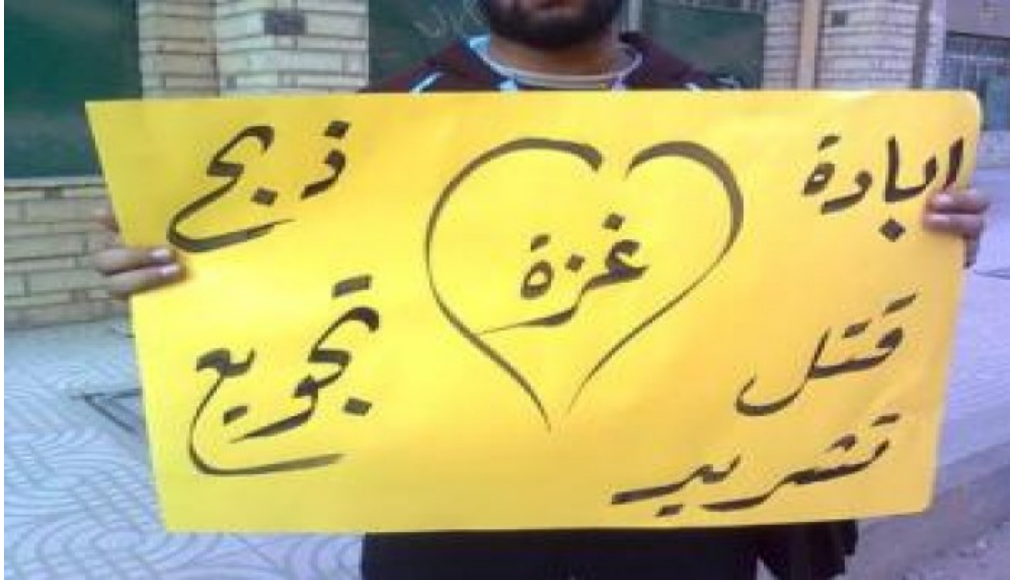 ابادة
قتل
تشريد
غزة
ذبح
تجويع